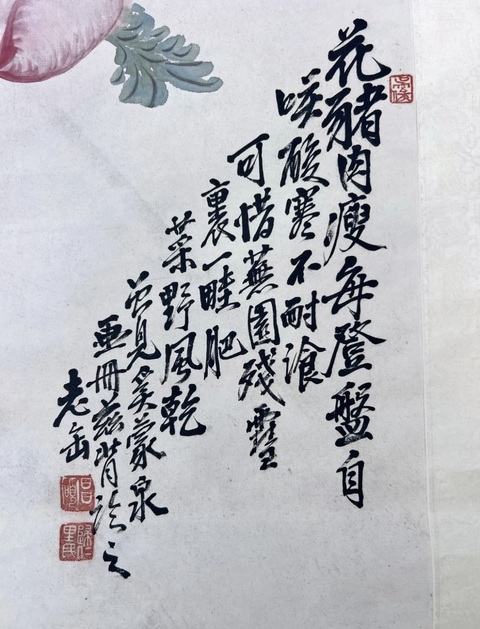 花豬肉瘦每登盤自
咲酸寒不耐湌
可惜蕪園殘雪
裏一畦肥
菜野風乾
曾見奚蒙泉
畫冊茲背臨之
老缶
歸仁里民